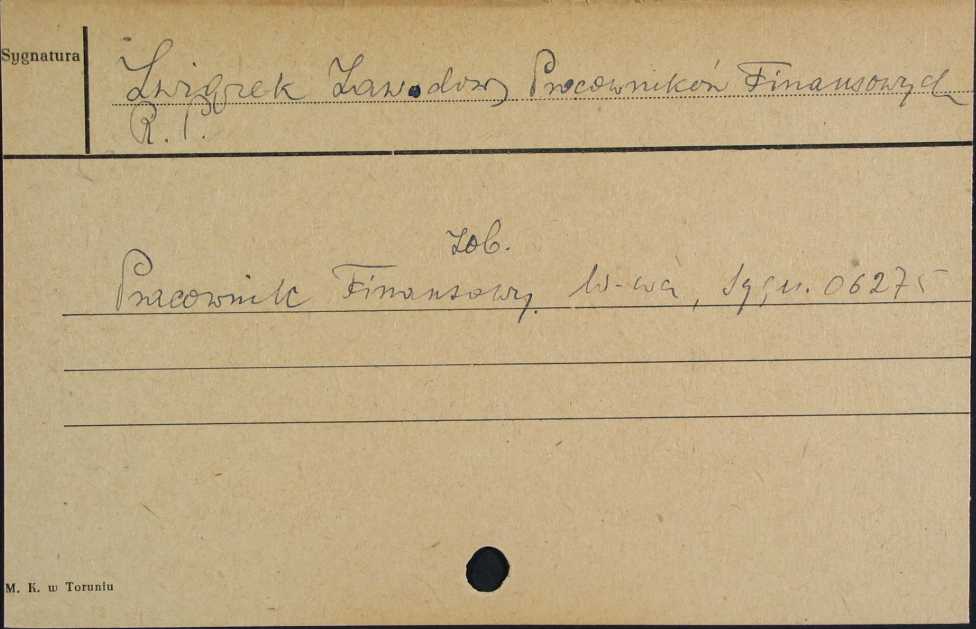 Sygnatura
Związek Zawodowy Pracowników Finansowych
R. P.
zob.
Pracownik Finansowy. W-wa, Sygn. 06275
M. K. w Toruniu